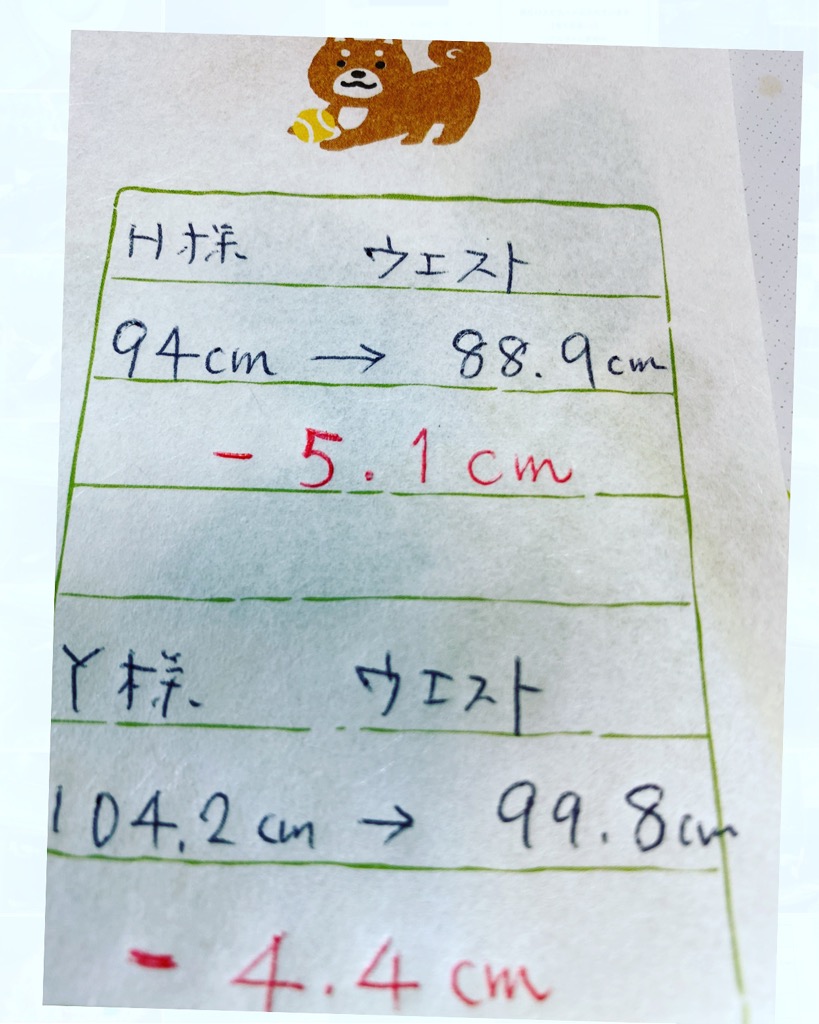 H様 ウエスト
94cm → 88.9cm
- 5.1cm
Y様 ウエスト
104.2cm → 99.8cm
- 4.4cm